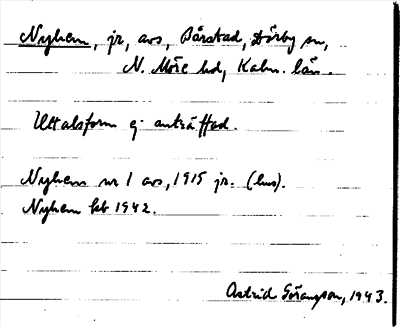 Nyhem, jr, avs, Bårstad, Dörby sn,
N. Möre hd, Kalm. län.
Uttalsform ej anträffad.
Nyhem nr 1 avs, 1915 jr. (hus).
Nyhem kb 1942.
Astrid Göransson, 1943.